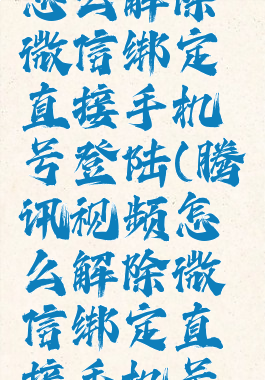 怎么解除
微信绑定
直接手机
号登陆(腾
讯视频怎
么解除微
信绑定直
接手机号